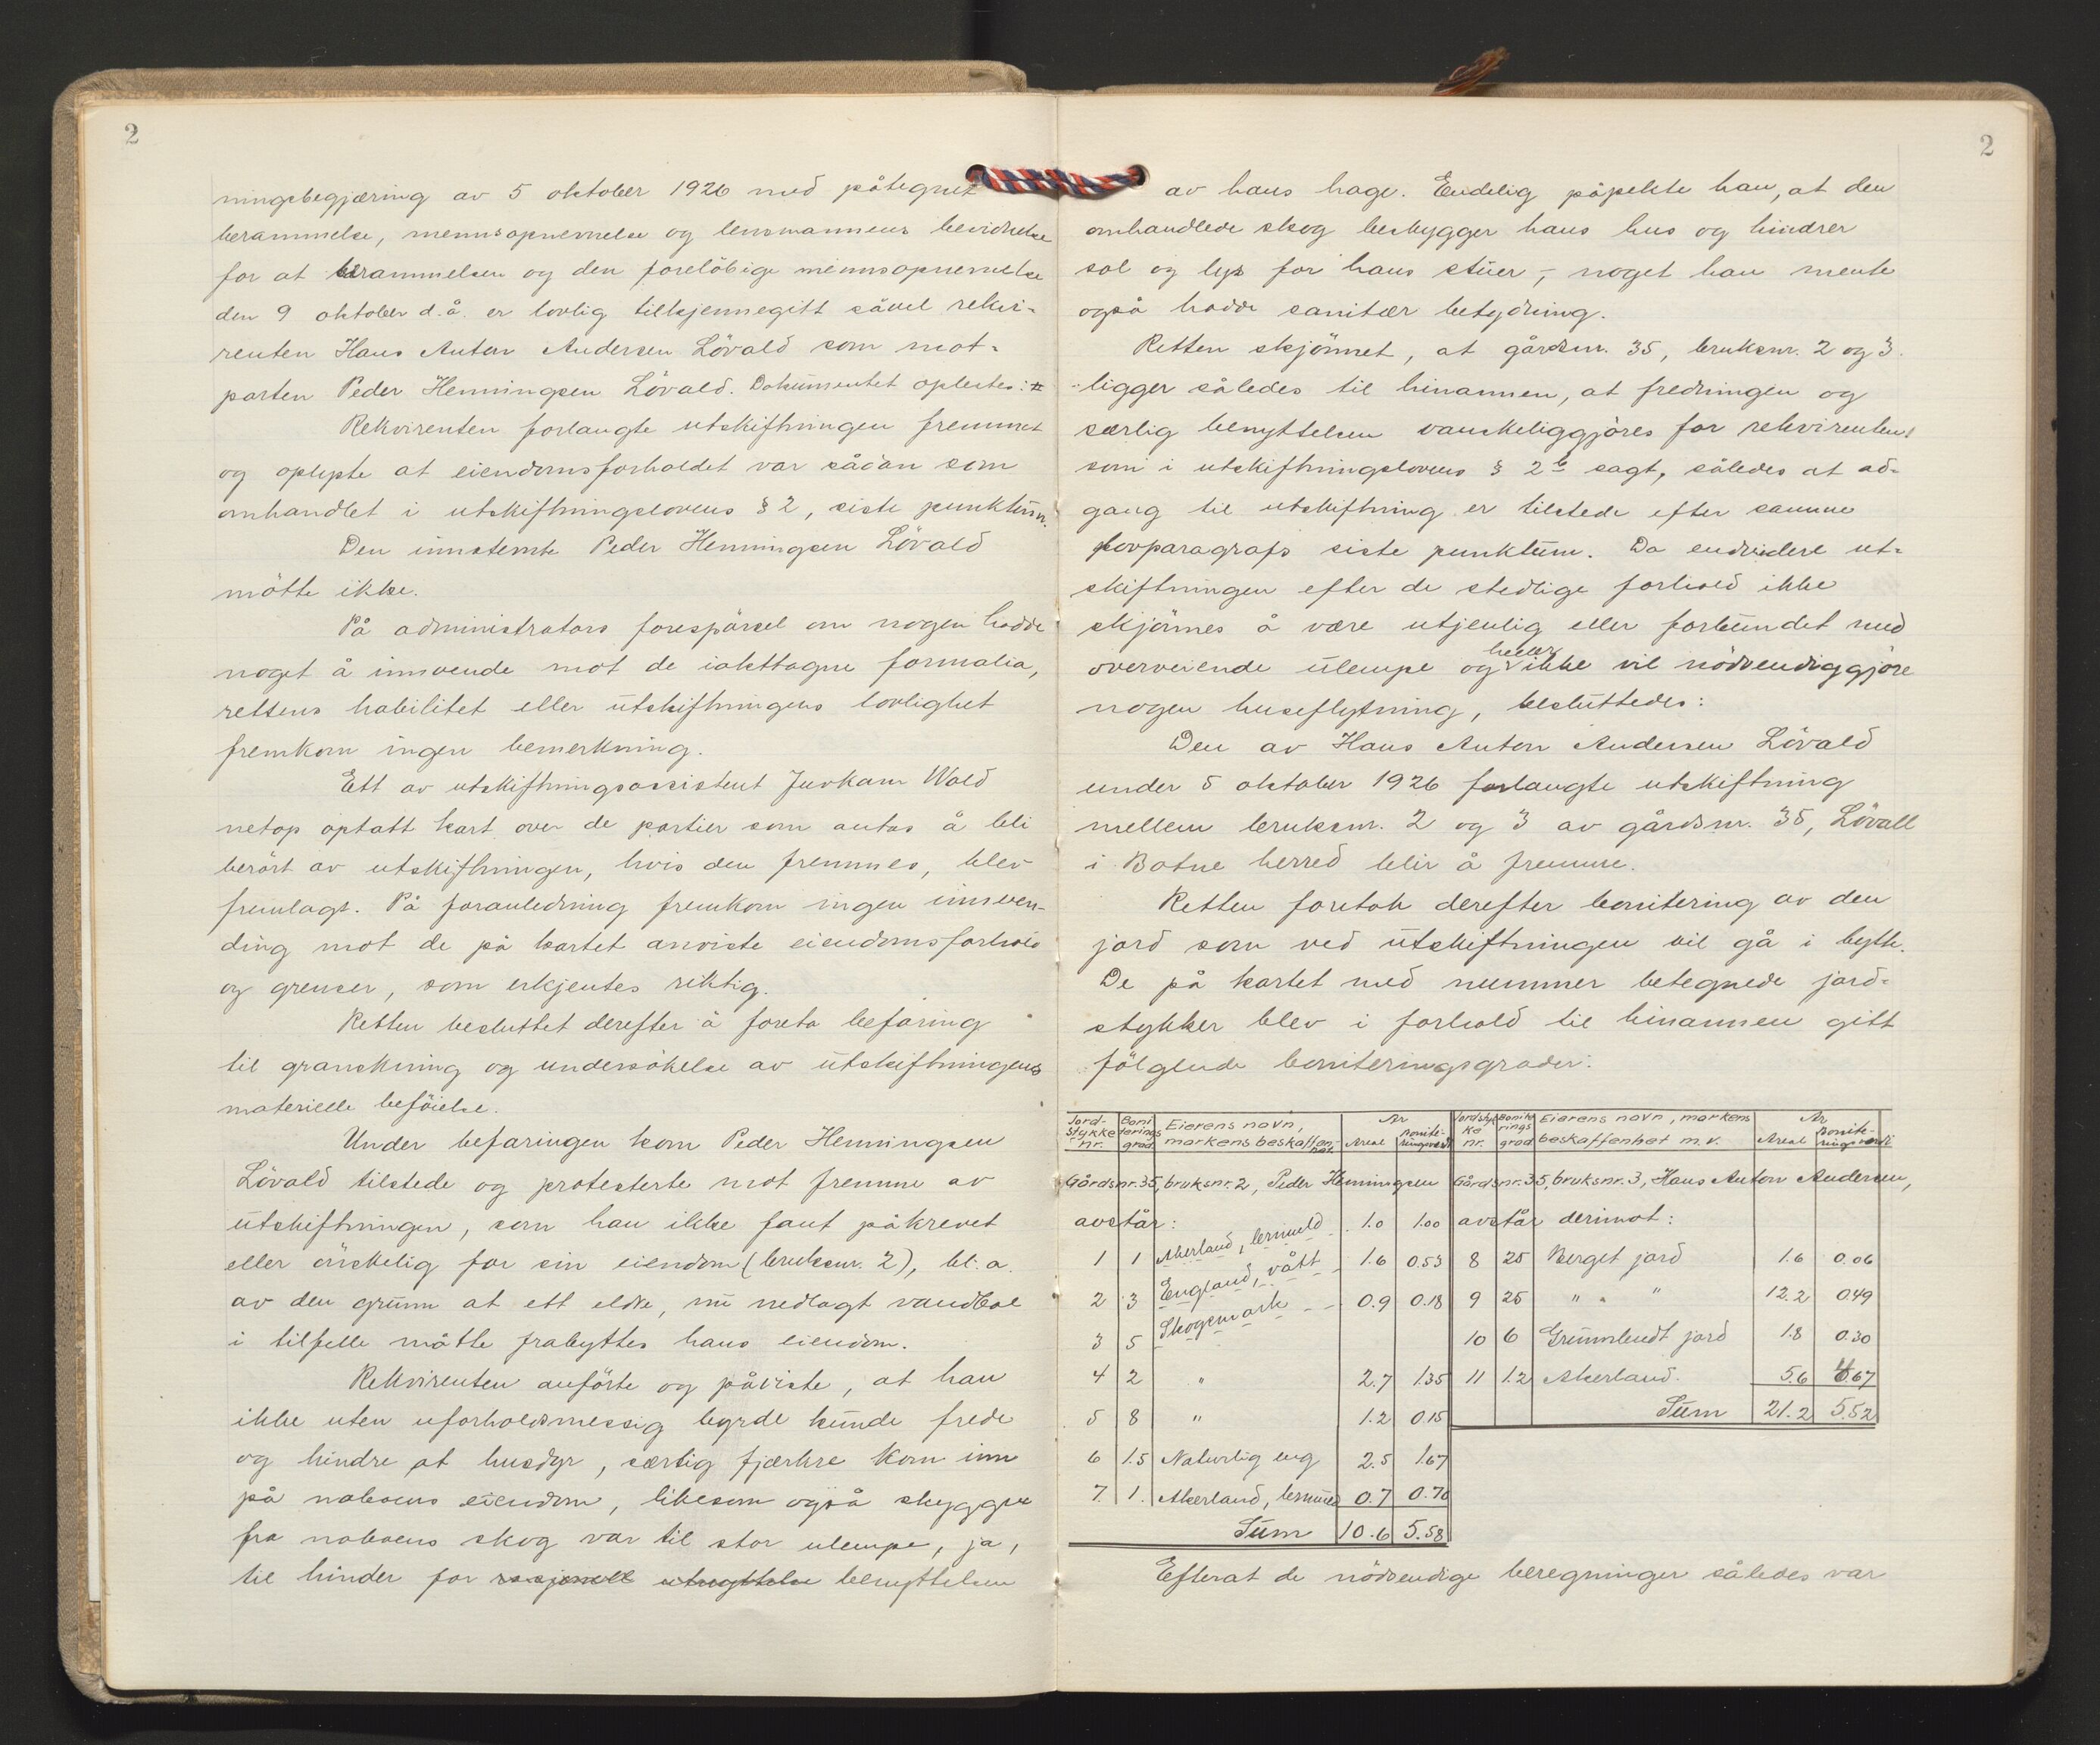 2
ningsbegjæring av 5 oktober 1926 med påtegnet
berammelse, mennsopnevnelse og lensmannens bevidnelse
for at berammelsen og den foreløbige mennsopnevnelse
den 9 oktober d.å. er lovlig tilkjennegitt såvel rekvi-
renten Hans Anton Andersen Lövald som mot-
parten Peder Henningsen Lövald. Dokumentet oplestes:
Rekvirenten forlangte utskiftningen fremmet
og oplyste at eiendomsforholdet var sådan som
omhandlet i utskiftningslovens § 2, siste punktum.
Den innstevnte Peder Henningsen Lövald
mötte ikke.
På administrators forespörsel om nogen hadde
noget å innvende mot de iakttagne formalia,
rettens habilitet eller utskiftningens lovlighet
fremkom ingen bemerkning.
Ett av utskiftningsassistent Juvkam Wold
netop optatt kart over de partier som antas å bli
berört av utskiftningen, hvis den fremmes, blev
fremlagt. På foranledning fremkom ingen innven-
ding mot de på kartet anviste eiendomsforhold
og grenser, som erkjentes riktig.
Retten besluttet derefter å foreta befaring
til granskning og undersökelse av utskiftningens
materielle beföielse.
Under befaringen kom Peder Henningsen
Lövald tilstede og protesterte mot fremme av
utskiftningen, som han ikke fant påkrevet
eller önskelig for sin eiendom (bruksnr. 2), bl. a.
av den grunn at ett eldre, nu nedlagt vandhol
i tilfelle måtte frabyttes hans eiendom.
Rekvirenten anförte og påviste, at han
ikke uten uforholdsmessig byrde kunde frede
og hindre at husdyr, særlig fjærkre kom inn
på naboens eiendom, likesom også skyggen
fra naboens skog var til stor ulempe, ja,
til hinder for rasjonell utnyttelse benyttelsen
2
av hans hage. Endelig påpekte han, at den
omhandlede skog beskygger hans hus og hindrer
sol og lys for hans stuer, - noget han mente
også hadde sanitær betydning.
Retten skjönnet, at gårdsnr. 35, bruksnr. 2 og 3.
ligger således til hinannen, at fredningen og
særlig benyttelsen vanskeliggjöres for rekvirenten,
som i utskiftningslovens § 2 b sagt, således at ad-
gang til utskiftning er tilstede efter samme
lovparagrafs siste punktum. Da endvidere ut-
skiftningen efter de stedlige forhold ikke
skjönnes å være utjenlig eller forbundet med
overveiende ulempe og heller ikke vil nödvendiggjöre
nogen huseflytning, besluttedes:
Den av Hans Anton Andersen Lövald
under 5 oktober 1926 forlangte utskiftning
mellem bruksnr. 2 og 3 av gårdsnr. 35, Lövall
i Botne herred blir å fremme.
Retten foretok derefter bonitering av den
jord som ved utskiftningen vil gå i bytte.
De på kartet med nummer betegnede jord-
stykker blev i forhold til hinannen gitt
fölgende boniteringsgrader:
Jord-stykke nr. Boniteringsgrad Eierens navn, markens beskaffenhet Ar Areal Boniteringsverdi Jordstykke nr. Boniteringsgrad Eierens navn, markens beskaffenhet m.v. Ar Areal Boniteringsverdi
Gårdsnr. 35, bruksnr. 2, Peder Henningsen Gårdsnr. 35, bruksnr. 3, Hans Anton Andersen,
avstår: avstår derimot:
1 1 Akerland, lermuld 1.0 1.00 8 25 Berget jord 1.6 0.06
2 3 England, vått 1.6 0.53 9 25 " " " 12.2 0.49
3 5 Skogsmark 0.9 0.18 10 6 Grunnlendt jord 1.8 0.30
4 2 " 2.7 1.35 11 1.2 Akerland. 5.6 4.67
5 8 " 1.2 0.15 Sum 21.2 5.52
6 1.5 Naturlig eng 2.5 1.67
7. 1. Akerland, lermuld 0.7 0.70
Sum 10.6 5.58
Efterat de nödvendige beregninger således var